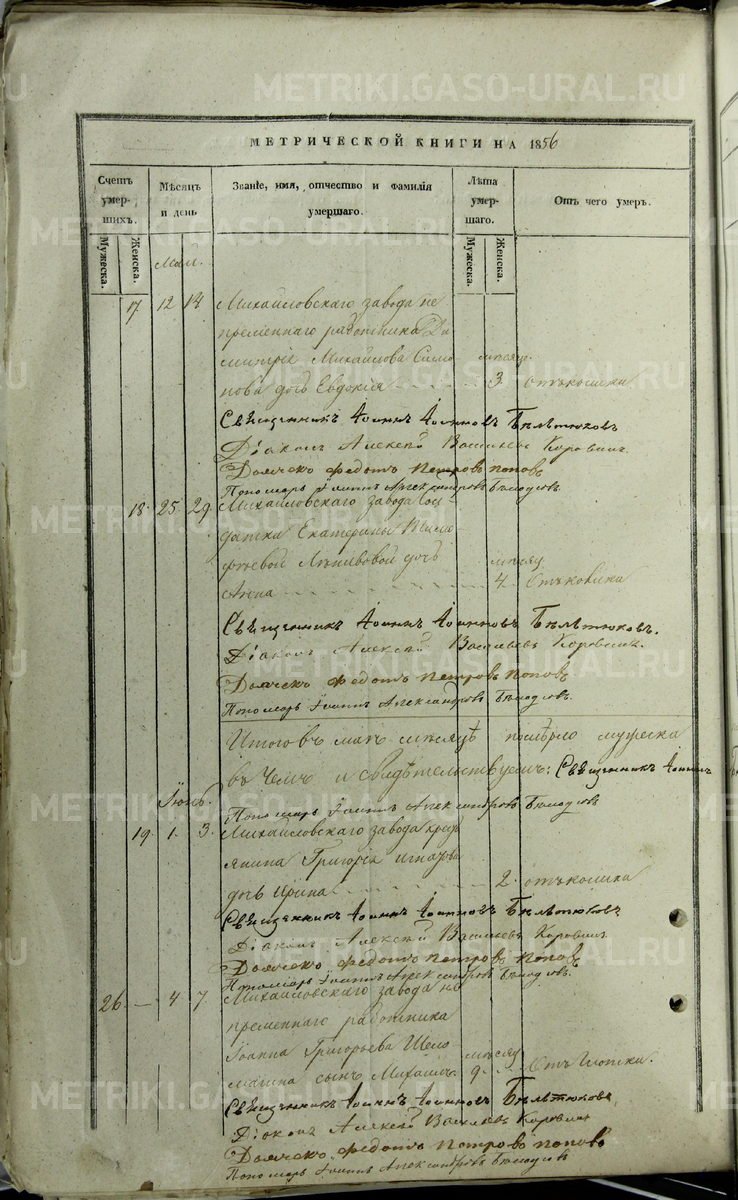 METRIKI.GASO-URAL.RU
МЕТРИЧЕСКОЙ КНИГИ НА 1856
Счетъ умершихъ.
Мѣсяцъ и день
Званіе, имя, отчество и фамилія умершаго.
Лѣта умершаго.
Отъ чего умеръ.
Мужеска.
Женска.
Мужеска.
Женска.
Маій.
17 12 14 Михайловскаго завода не
пременнаго работника Ди
митрія Михайлова Симо мѣсяцъ.
нова дочь Евдокія 3. отъ колики
Священникъ Іоаннъ Іоанновъ Бѣлѣтюковъ
Діаконъ Алексѣй Васильевъ Коровинъ.
Дьячекъ Федотъ Петровъ Поповъ
Пономарь Іоаннъ Александровъ
18. 25 29. Михайловскаго завода сол
датки Екатерины
дочь мѣсяц.
Анна 4. Отъ колики
Священникъ Іоаннъ Іоанновъ Бѣлѣтюковъ.
Діаконъ Алексѣй Васильевъ Коровинъ.
Дьячекъ Федотъ Петровъ Поповъ
Пономарь Іоаннъ Александровъ
Итого въ маіѣ мѣсяцѣ померло мужеска
въ чемъ и свидѣтельствуемъ: Священникъ Іоаннъ
Іюнь.
Пономарь Іоаннъ Александровъ
19. 1. 3. Михайловскаго завода крест
янина Григорія
дочь Ирина 2. отъ колики
Священникъ Іоаннъ Іоанновъ Бѣлѣтюковъ
Діаконъ Алексѣй Васильевъ Коровинъ
Дьячекъ Федотъ Петровъ Поповъ
Пономарь Іоаннъ Александровъ
26. — 4 7. Михайловскаго завода не
пременнаго работника
Іоанна Григорьева Шело мѣсяц
сынъ Михаилъ. 9. Отъ
Священникъ Іоаннъ Іоанновъ Бѣлѣтюковъ
Діаконъ Алексѣй Васильевъ Коровинъ
Дьячекъ Федотъ Петровъ Поповъ
Пономарь Іоаннъ Александровъ